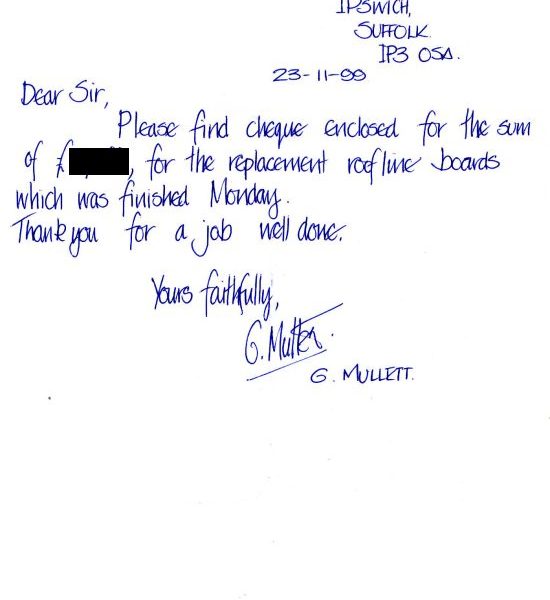 IPSWICH,
SUFFOLK.
IP3 0SA.
23-11-99
Dear Sir,
Please find cheque enclosed for the sum
of £, for the replacement roofline boards
which was finished Monday.
Thank you for a job well done.
Yours faithfully,
G. Mullett.
G. MULLETT.